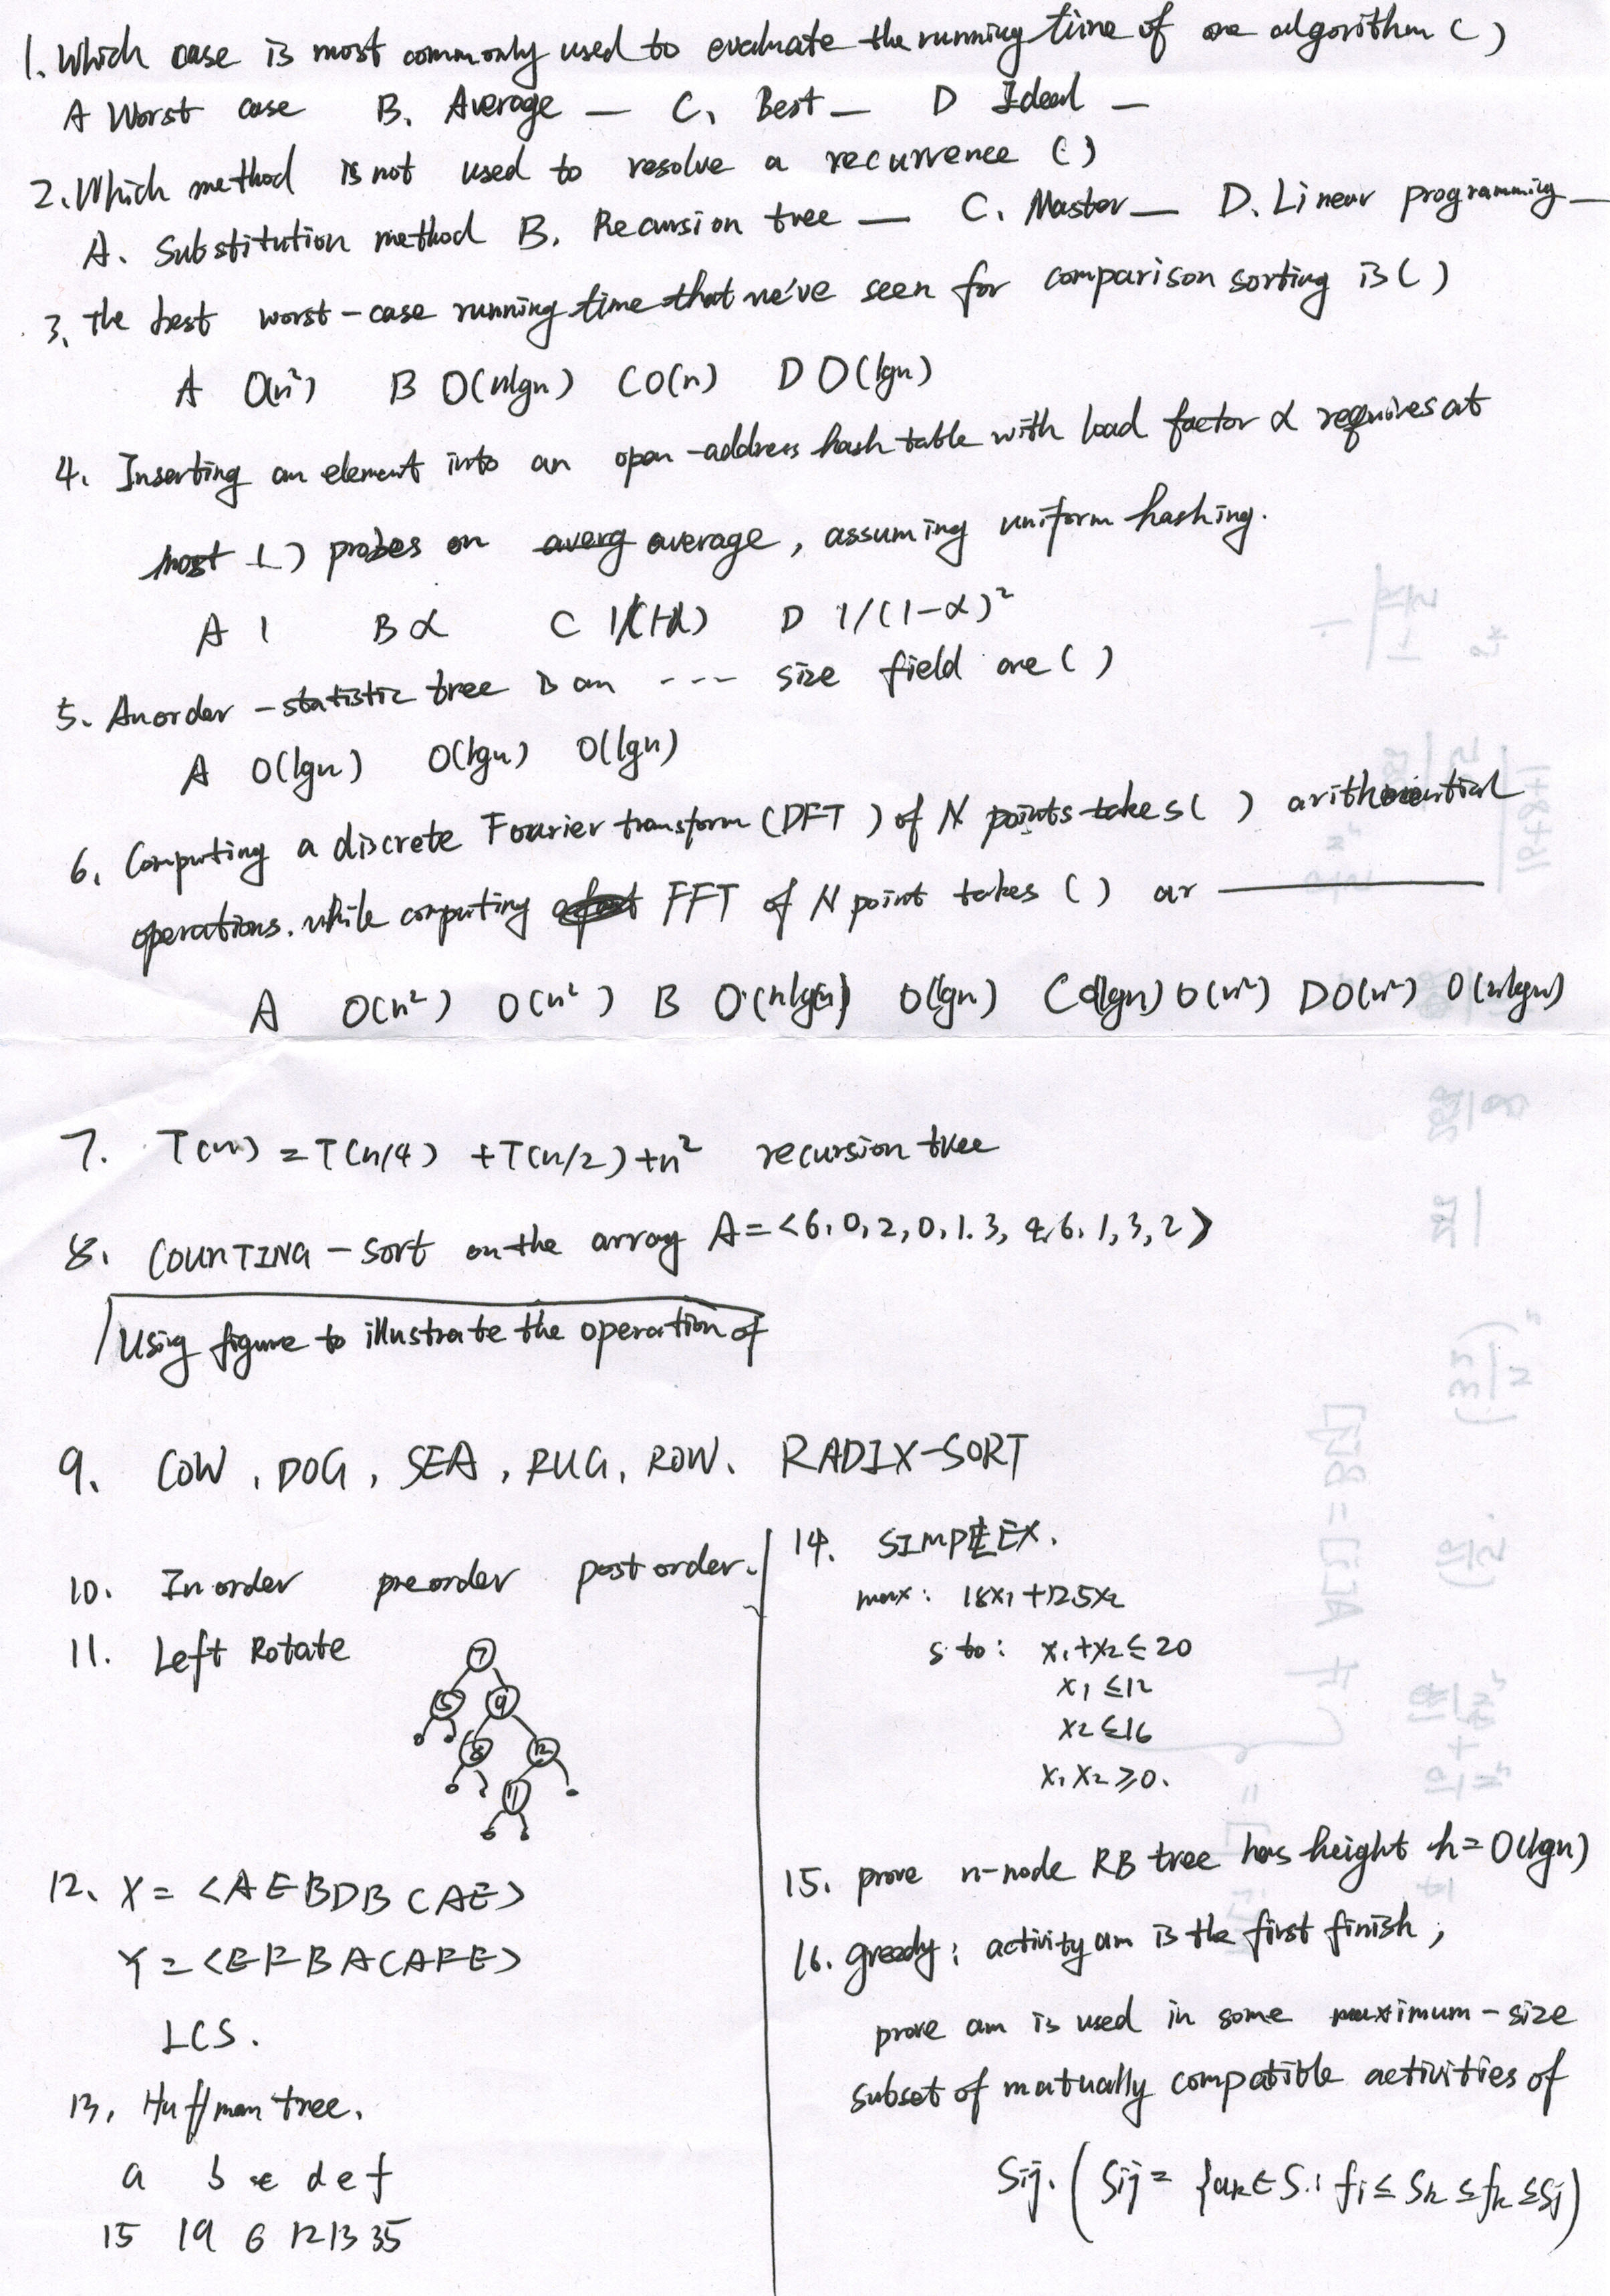 1. Which case is most commonly used to evaluate the running time of one algorithm ( )
A Worst case B. Average — C. Best — D Ideal —
2. Which method is not used to resolve a recurrence ( )
A. Substitution method B. Recursion tree — C. Master — D. Linear programming —
3. the best worst-case running time that we've seen for comparison sorting is ( )
A O(n²) B O(nlgn) C O(n) D O(lgn)
4. Inserting an element into an open-address hash table with load factor α requires at
most ( ) probes on average, assuming uniform hashing.
A 1 B α C 1/(1-α) D 1/(1-α)²
5. An order-statistic tree is an --- size field are ( )
A O(lgn) O(lgn) O(lgn)
6. Computing a discrete Fourier transform (DFT) of N points takes ( )
operations. while computing FFT of N point takes ( ) ar ———
A O(n²) O(n²) B O(nlgn) O(lgn) C O(lgn) O(n²) D O(n²) O(nlgn)
7. T(n) = T(n/4) + T(n/2) + n² recursion tree
8. COUNTING-sort on the array A = <6, 0, 2, 0, 1. 3, 4, 6. 1, 3, 2>
Using figure to illustrate the operation of
9. COW, DOG, SEA, RUG, ROW. RADIX-SORT
10. In order preorder post order.
11. Left Rotate
7
5 9
8 12
11
12. X = <AEBDBCAE>
Y = <EFBACAFE>
LCS.
13. Huffman tree.
a b c d e f
15 19 6 12 13 35
14. SIMPLEX.
max: 18x₁ + 12.5x₂
s. to: x₁ + x₂ ≤ 20
x₁ ≤ 12
x₂ ≤ 16
x₁ x₂ ≥ 0.
15. prove n-node RB tree has height h = O(lgn)
16. greedy: activity am is the first finish,
prove am is used in some maximum-size
subset of mutually compatible activities of
Sij. (Sij = {ak ∈ S : fi ≤ Sk ≤ fk ≤ Sj)